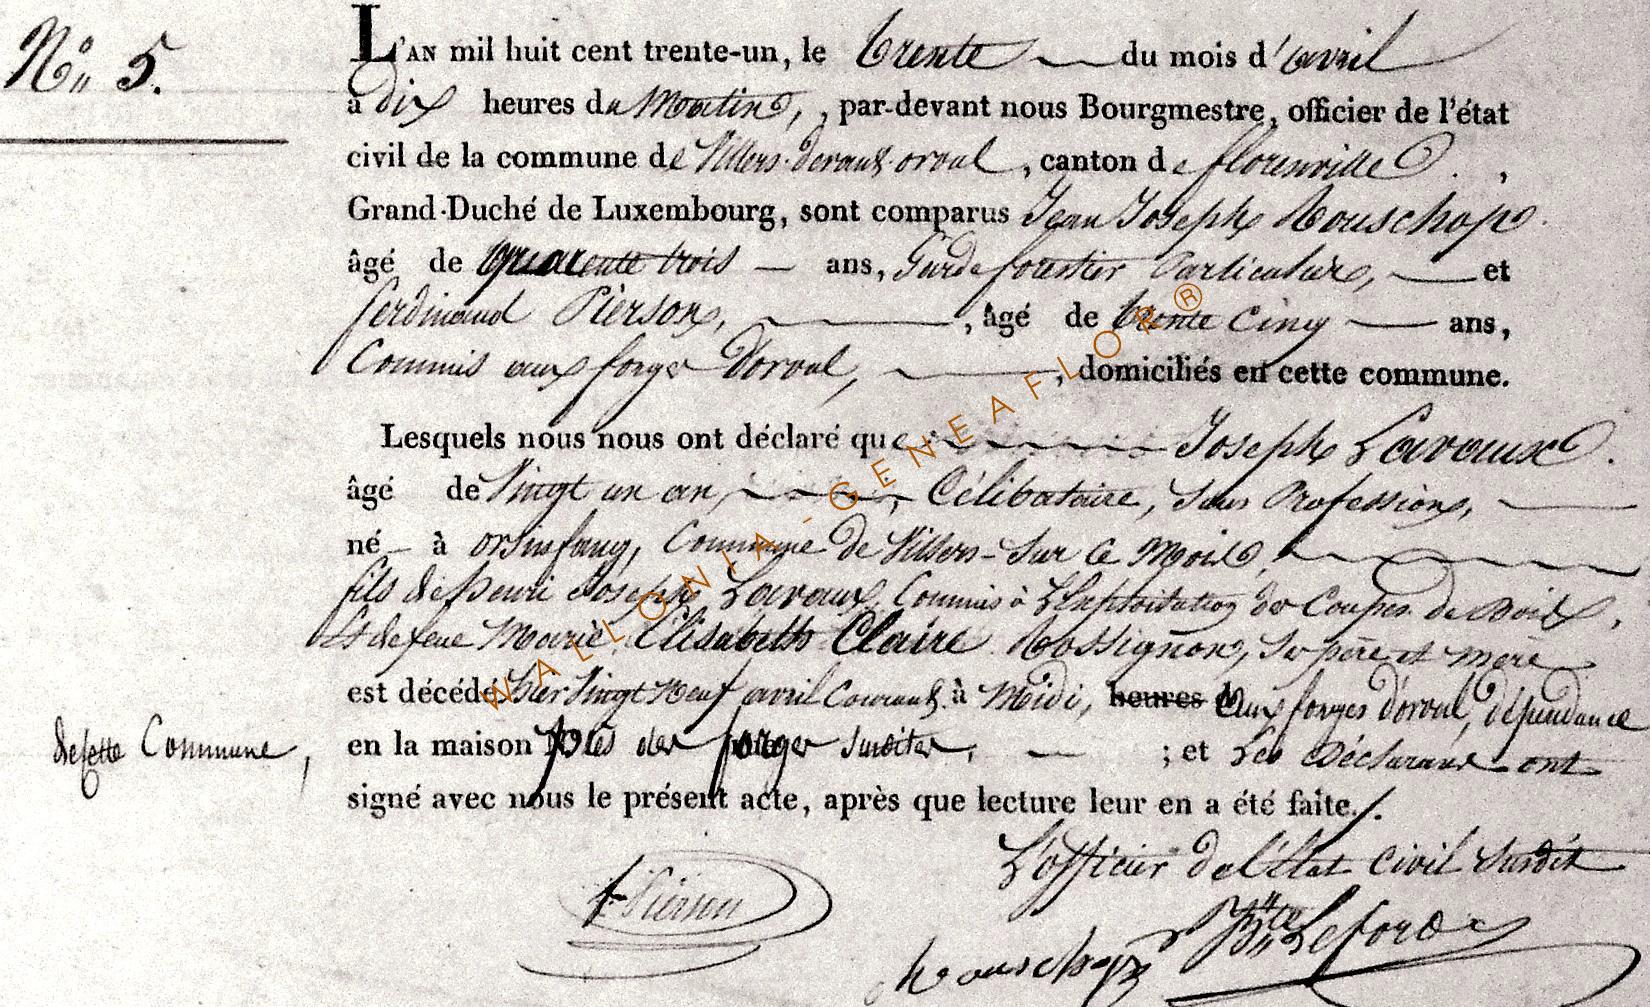 N° 5.
L'AN mil huit cent trente-un, le trente du mois d'avril
a dix heures du Matin, , par-devant nous Bourgmestre, officier de l'état
civil de la commune de Villers-devant-orval , canton de florenville . ,
Grand-Duché de Luxembourg, sont comparus Jean Joseph Houschop
âgé de quarente trois — ans, Garde forestier Particulier, — et
ferdinand Pierson, , âgé de trente Cinq — ans,
Commis aux forges Dorval, , domiciliés en cette commune.
Lesquels nous nous ont déclaré que Joseph Lavaux .
âgé de Vingt un an, Célibataire, Sans Profession,
né à orsinfaing, Commune de Villers-Sur Ce Moid,
fils de henri Joseph Lavaux, Commis à L'Exploitation des Coupes de Boid,
Et de feue Marie Elisabeth Claire Rossignon, Se père et mère
est décédé hier Vingt Neuf avril Courant à Midi, heures d aux forges d'orval, dépendance
de Cette Commune,
en la maison des forges Susdites, — ; et Les Déclarans ont
signé avec nous le présent acte, après que lecture leur en a été faite./.
L'officier de l'État Civil Susdit
f. Pierson
Bte Leford
houschop
WALLONIA - GENEAFLOR ®